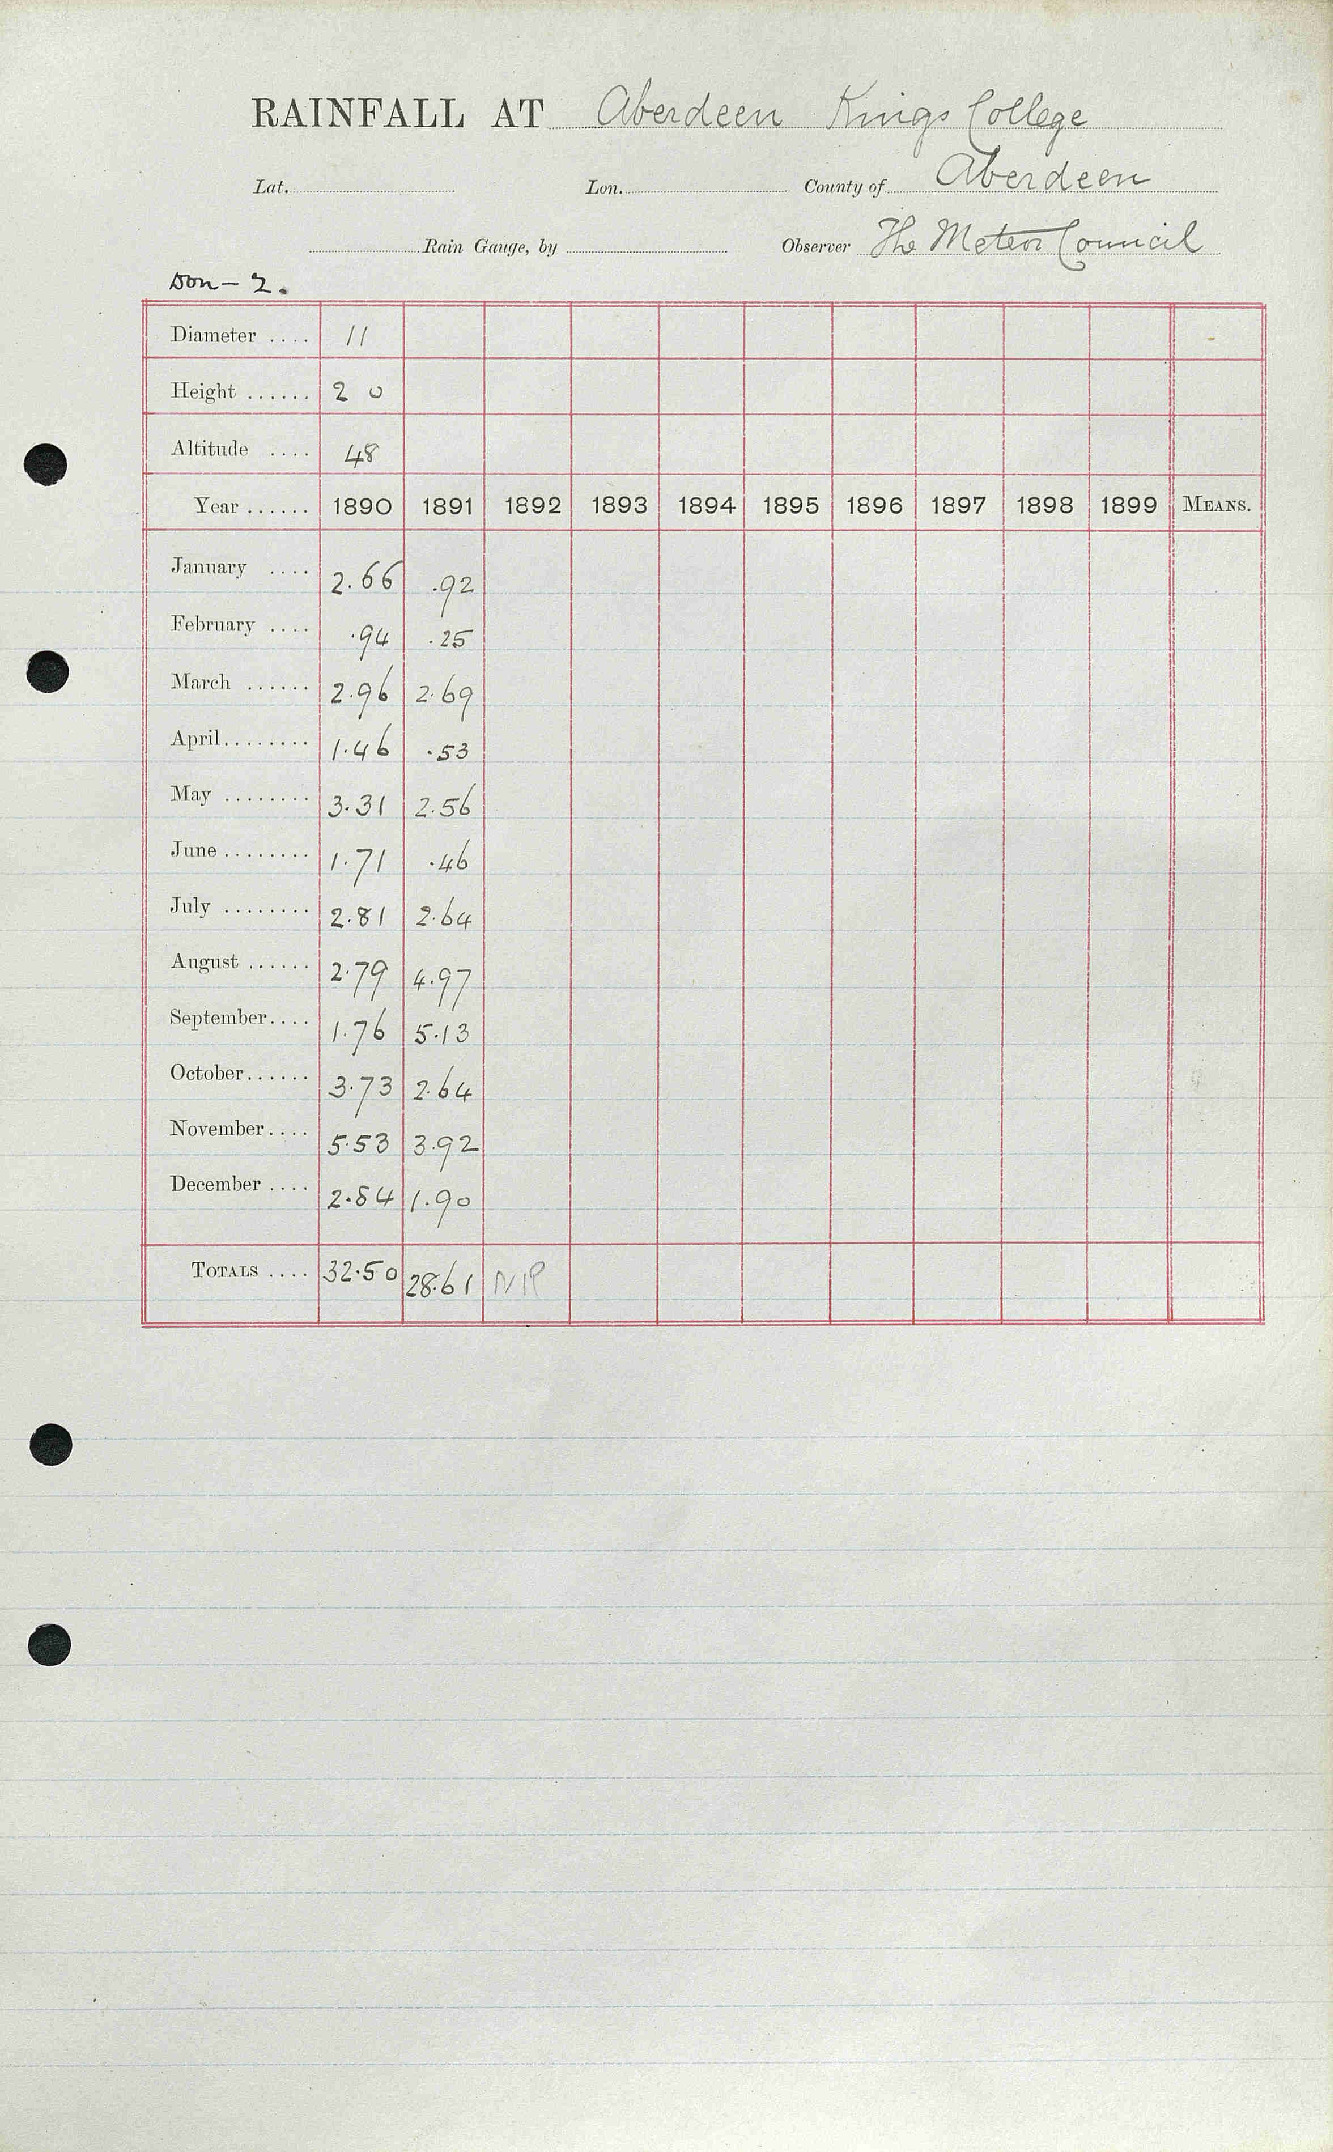 RAINFALL AT Aberdeen Kings College
Lat. Lon. County of Aberdeen
Rain Gauge, by Observer The Meteor Council
Don - 2.
Diameter .... 11
Height ...... 2 0
Altitude .... 48
Year ...... 1890 1891 1892 1893 1894 1895 1896 1897 1898 1899 MEANS.
January .... 2.66 .92
February .... .94 .25
March ...... 2.96 2.69
April........ 1.46 .53
May ........ 3.31 2.56
June ........ 1.71 .46
July ........ 2.81 2.64
August ...... 2.79 4.97
September.... 1.76 5.13
October...... 3.73 2.64
November.... 5.53 3.92
December .... 2.84 1.90
TOTALS .... 32.50 28.61 NP